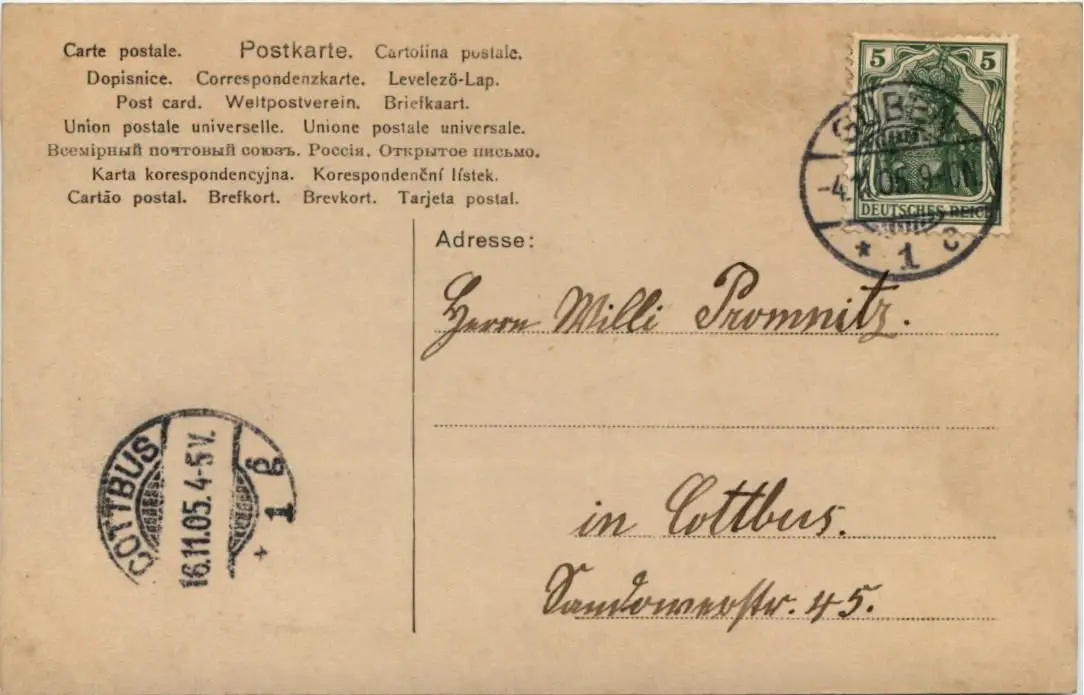 Carte postale. Postkarte. Cartolina postale.
Dopisnice. Correspondenzkarte. Levelező-Lap.
Post card. Weltpostverein. Briefkaart.
Union postale universelle. Unione postale universale.
Всемірный почтовый союзъ. Россія. Открытое письмо.
Karta korespondencyjna. Korespondenční lístek.
Cartão postal. Brefkort. Brevkort. Tarjeta postal.
5 5
DEUTSCHES REICH
GUBEN
* 1 c
Adresse:
Herrn Willi Promnitz.
in Cottbus.
Sandowerstr. 45.
COTTBUS
16.11.05. 4-5 V.
* 1